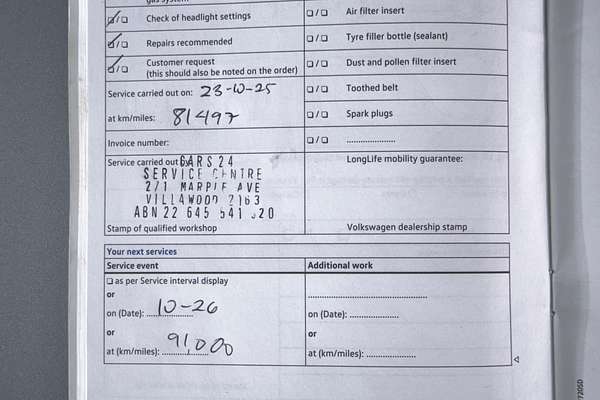 gas system
☑/☐ Check of headlight settings
☑/☐ Repairs recommended
☑/☐ Customer request
(this should also be noted on the order)
Service carried out on: 23-10-25
at km/miles: 81497
Invoice number:
Service carried out
CARS 24
SERVICE CENTRE
2/1 MARPLE AVE
VILLAWOOD 2163
ABN 22 645 541 20
Stamp of qualified workshop
☐/☐ Air filter insert
☐/☐ Tyre filler bottle (sealant)
☐/☐ Dust and pollen filter insert
☐/☐ Toothed belt
☐/☐ Spark plugs
☐/☐ ......................
LongLife mobility guarantee:
Volkswagen dealership stamp
Your next services
Service event
☐ as per Service interval display
or
on (Date): 10-26
or
at (km/miles): 91,000
Additional work
on (Date): ......................
or
at (km/miles): ......................